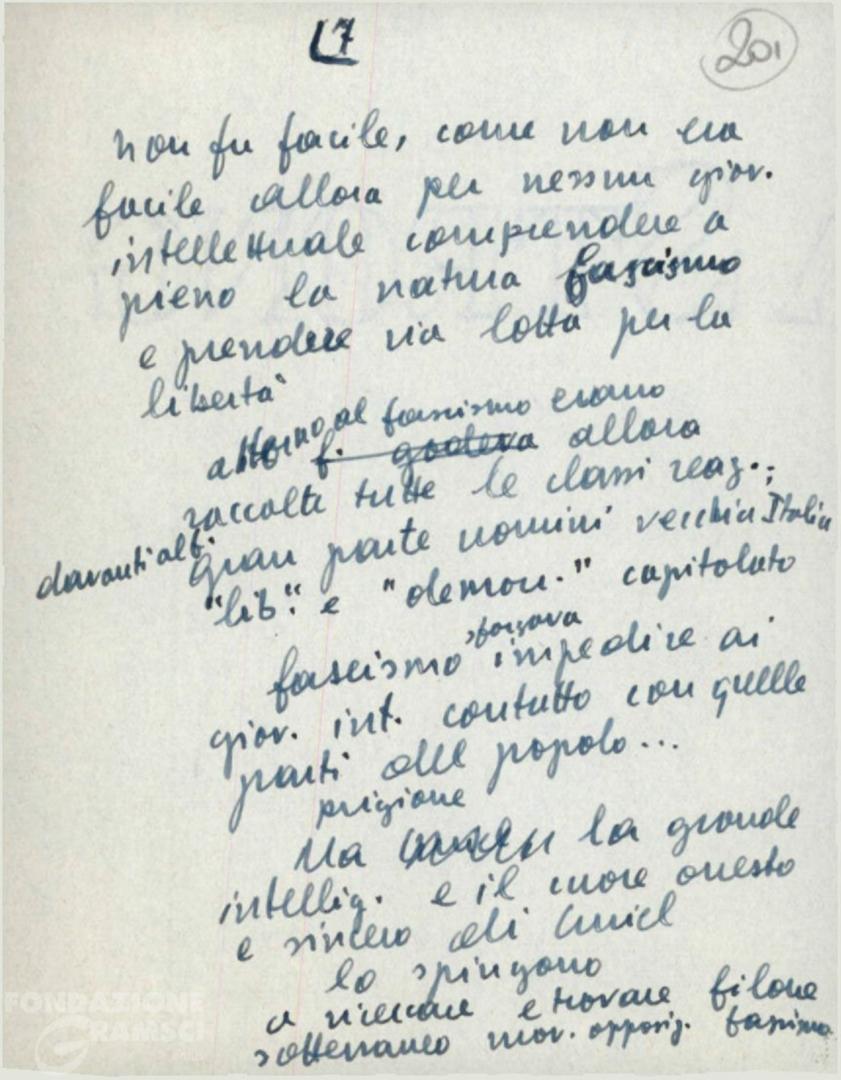 7
201
non fu facile, come non era
facile allora per nessun giov.
intellettuale comprendere a
pieno la natura fascismo
e prendere via lotta per la
libertà
attorno al fascismo erano
f. godeva allora
raccolte tutte le classi reaz.;
davanti al f.
gran parte uomini vecchia Italia
"lib". e "democr." capitolato
sforzava
fascismo impedire ai
giov. int. contatto con quelle
parti del popolo...
prigione
Ma la grande
intellig. e il cuore onesto
e sincero di Curiel
lo spingono
a ricercare e trovare filone
sotterraneo mov. opposiz. fascismo
FONDAZIONE
GRAMSCI